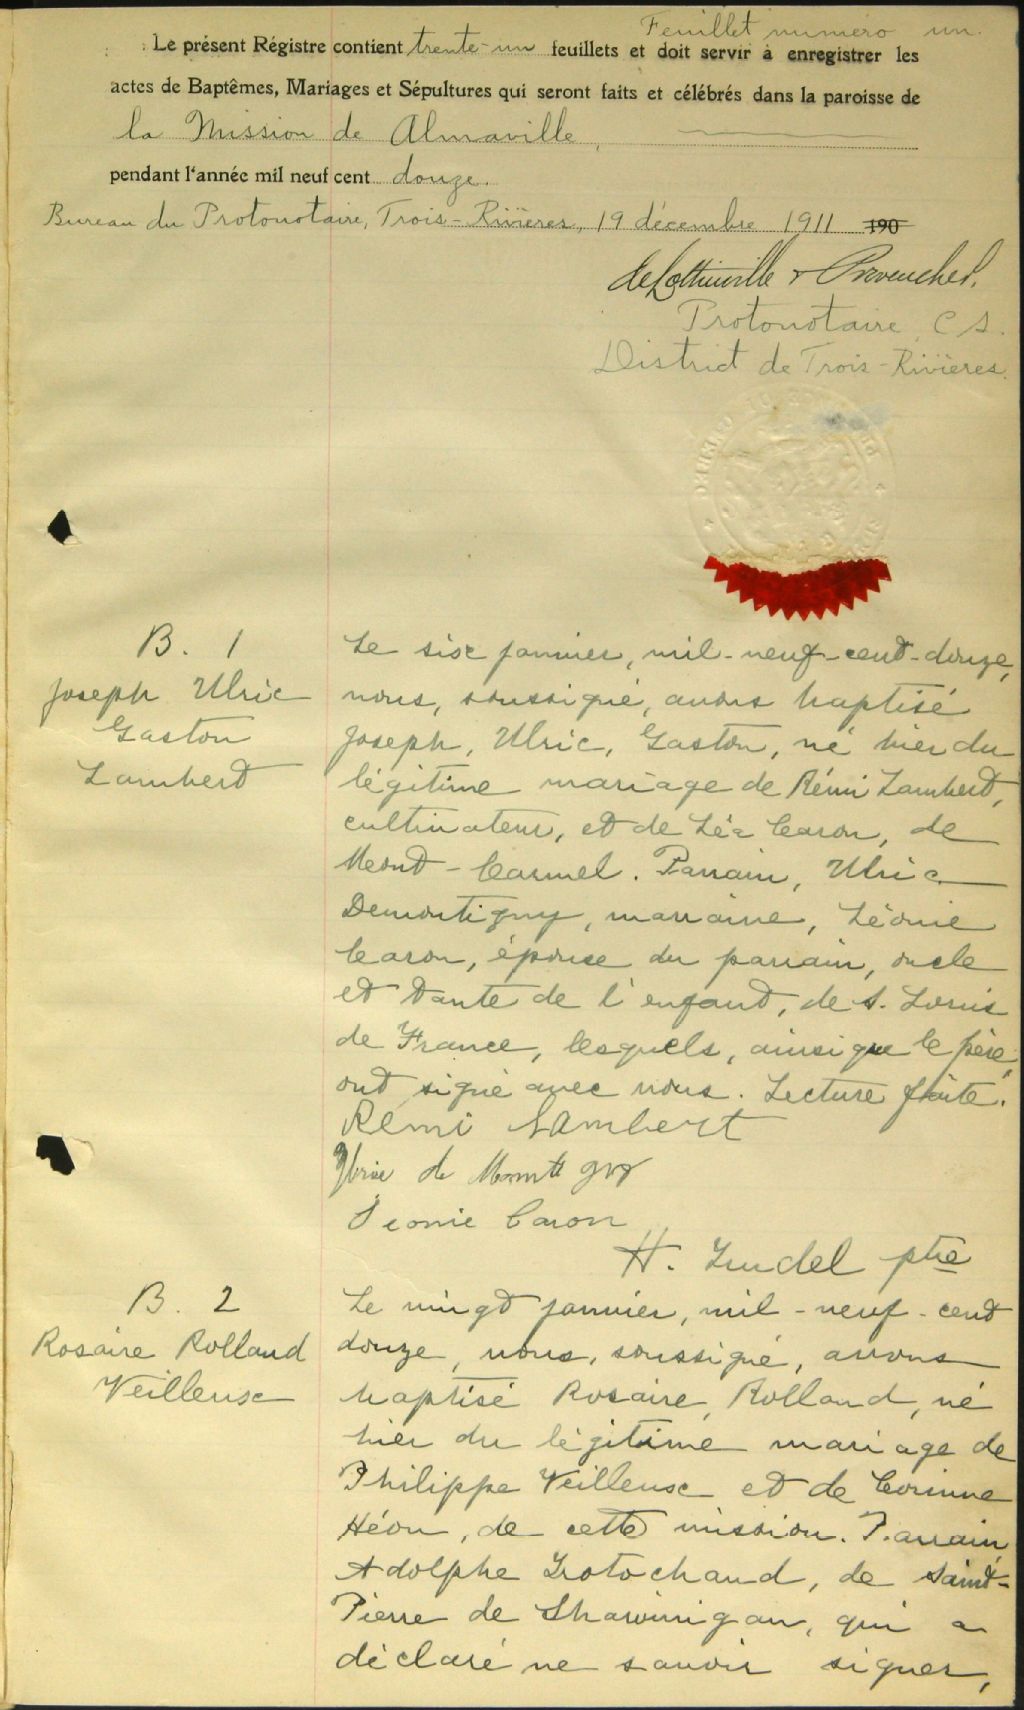 Feuillet numero un.
Le présent Régistre contient trente-un feuillets et doit servir à enregistrer les
actes de Baptêmes, Mariages et Sépultures qui seront faits et célébrés dans la paroisse de
la Mission de Almaville,
pendant l'année mil neuf cent douze.
Bureau du Protonotaire, Trois-Rivières, 19 décembre 1911 190
deLottinville & Provencher.
Protonotaire, C S.
District de Trois-Rivières.
B. 1
Joseph Ulric
Gaston
Lambert
Le six janvier, mil-neuf-cent-douze,
nous, soussigné, avons baptisé
Joseph, Ulric, Gaston, né hier du
légitime mariage de Rémi Lambert,
cultivateur, et de Léa Caron, de
Mont-Carmel. Parrain, Ulric
Demontigny, marraine, Léonie
Caron, épouse du parrain, oncle
et tante de l'enfant, de S. Louis
de France, lesquels, ainsi que le père,
ont signé avec nous. Lecture faite.
Rémi Lambert
de
Leonie Caron
H. Trudel ptre
B. 2
Rosaire Rolland
Veilleux
Le vingt janvier, mil-neuf-cent
douze, nous, soussigné, avons
baptisé Rosaire, Rolland, né
hier du légitime mariage de
Philippe Veilleux et de Corinne
Héon, de cette mission. Parrain,
Adolphe Trotochaud, de Saint-
Pierre de Shawinigan, qui a
déclaré ne savoir signer,